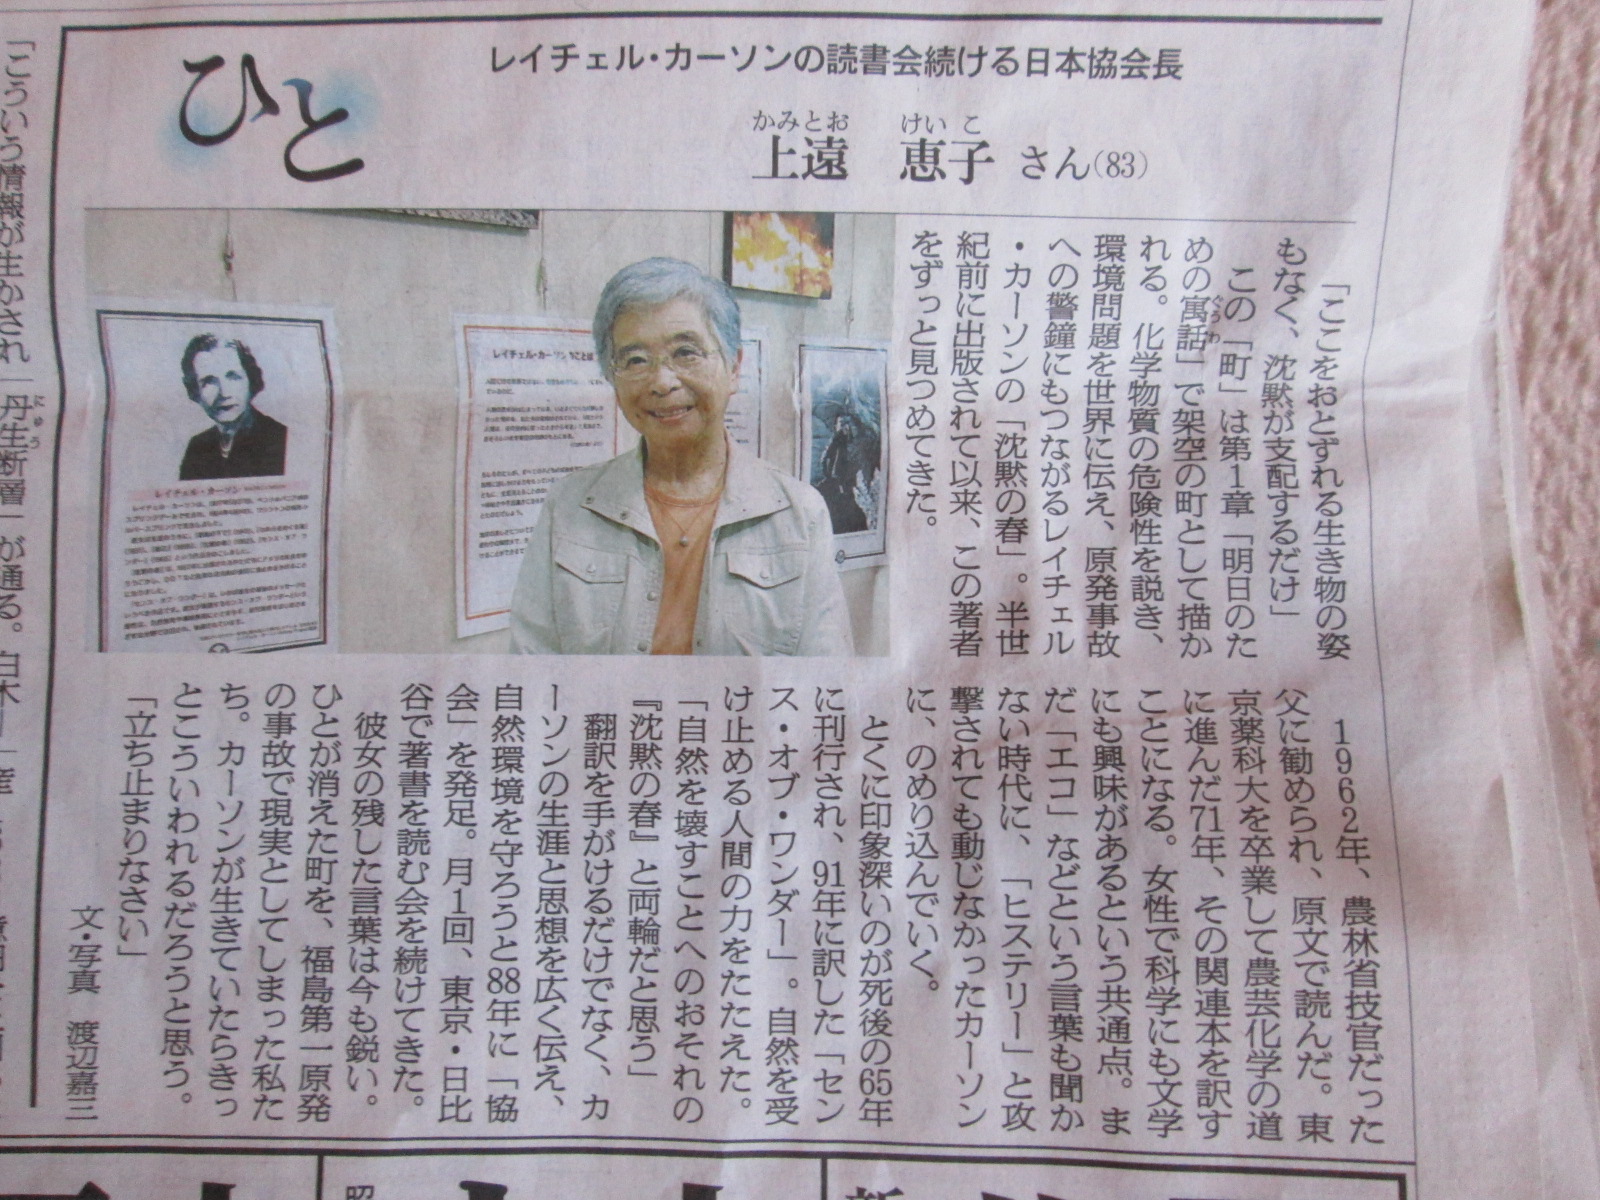 ひと
レイチェル・カーソンの読書会続ける日本協会長
かみとお けいこ
上遠 恵子 さん(83)
「ここをおとずれる生き物の姿
もなく、沈黙が支配するだけ」
この「町」は第1章「明日のた
めの寓話」で架空の町として描か
ぐうわ
れる。化学物質の危険性を説き、
環境問題を世界に伝え、原発事故
への警鐘にもつながるレイチェル
・カーソンの「沈黙の春」。半世
紀前に出版されて以来、この著者
をずっと見つめてきた。
1962年、農林省技官だった
父に勧められ、原文で読んだ。東
京薬科大を卒業して農芸化学の道
に進んだ71年、その関連本を訳す
ことになる。女性で科学にも文学
にも興味があるという共通点。ま
だ「エコ」などという言葉も聞か
ない時代に、「ヒステリー」と攻
撃されても動じなかったカーソン
に、のめり込んでいく。
とくに印象深いのが死後の65年
に刊行され、91年に訳した「セン
ス・オブ・ワンダー」。自然を受
け止める人間の力をたたえた。
「自然を壊すことへのおそれの
『沈黙の春』と両輪だと思う」
翻訳を手がけるだけでなく、カ
ーソンの生涯と思想を広く伝え、
自然環境を守ろうと88年に「協
会」を発足。月1回、東京・日比
谷で著書を読む会を続けてきた。
彼女の残した言葉は今も鋭い。
ひとが消えた町を、福島第一原発
の事故で現実としてしまった私た
ち。カーソンが生きていたらきっ
とこういわれるだろうと思う。
「立ち止まりなさい」
文・写真 渡辺嘉三
レイチェル・カーソン
「こういう情報が生かされ
丹生断層
にゅう
が通る。白木
昭
新